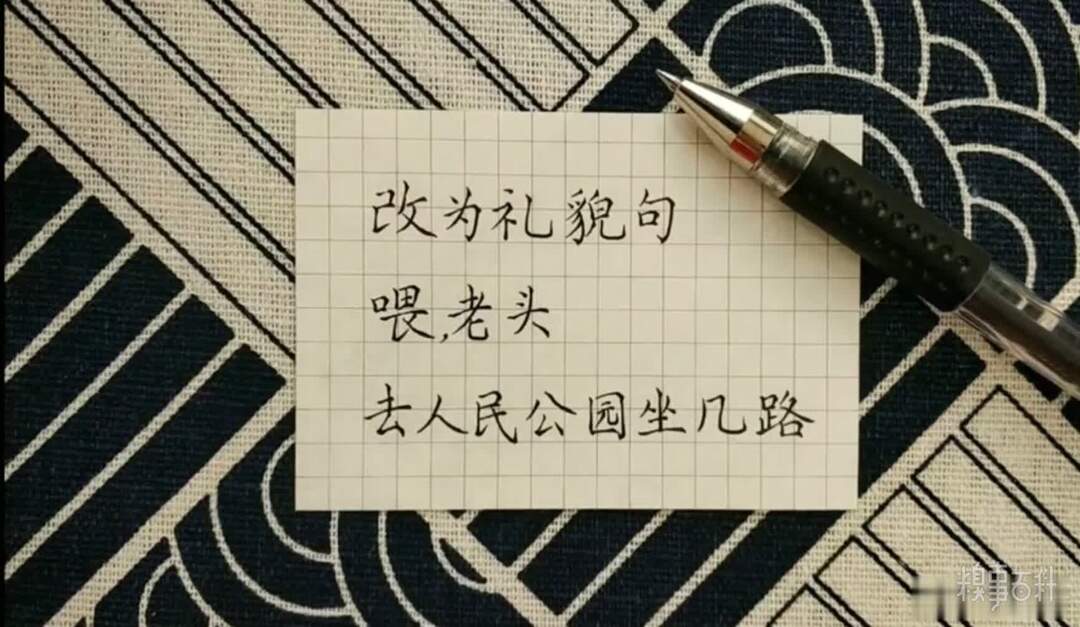 改为礼貌句
喂,老头
去人民公园坐几路
糗事百科